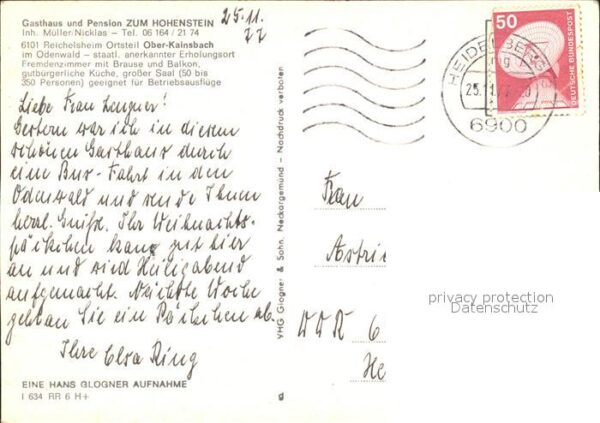 Gasthaus und Pension ZUM HOHENSTEIN
Inh. Müller/Nicklas – Tel. 06 164 / 21 74
6101 Reichelsheim Ortsteil Ober-Kainsbach
im Odenwald – staatl. anerkannter Erholungsort
Fremdenzimmer mit Brause und Balkon,
gutbürgerliche Küche, großer Saal (50 bis
350 Personen) geeignet für Betriebsausflüge
25.11.
77
Liebe Frau
Gestern war ich in diesem
schönen Gasthaus durch
eine Bus-Fahrt in den
Odenwald und sende Ihnen
herzl. Grüße. Ihr Weihnachts-
päckchen kam gut hier
an und wird Heiligabend
aufgemacht. Nächste Woche
gehen Sie ein Päckchen ab.
Ihre Elsa Ring
EINE HANS GLOGNER AUFNAHME
I 634 RR 6 H+
VHG Glogner & Sohn, Neckargemünd – Nachdruck verboten
g
HEIDELBERG
6900
50
DEUTSCHE BUNDESPOST
Frau
Astri
DDR 6
He
privacy protection
Datenschutz